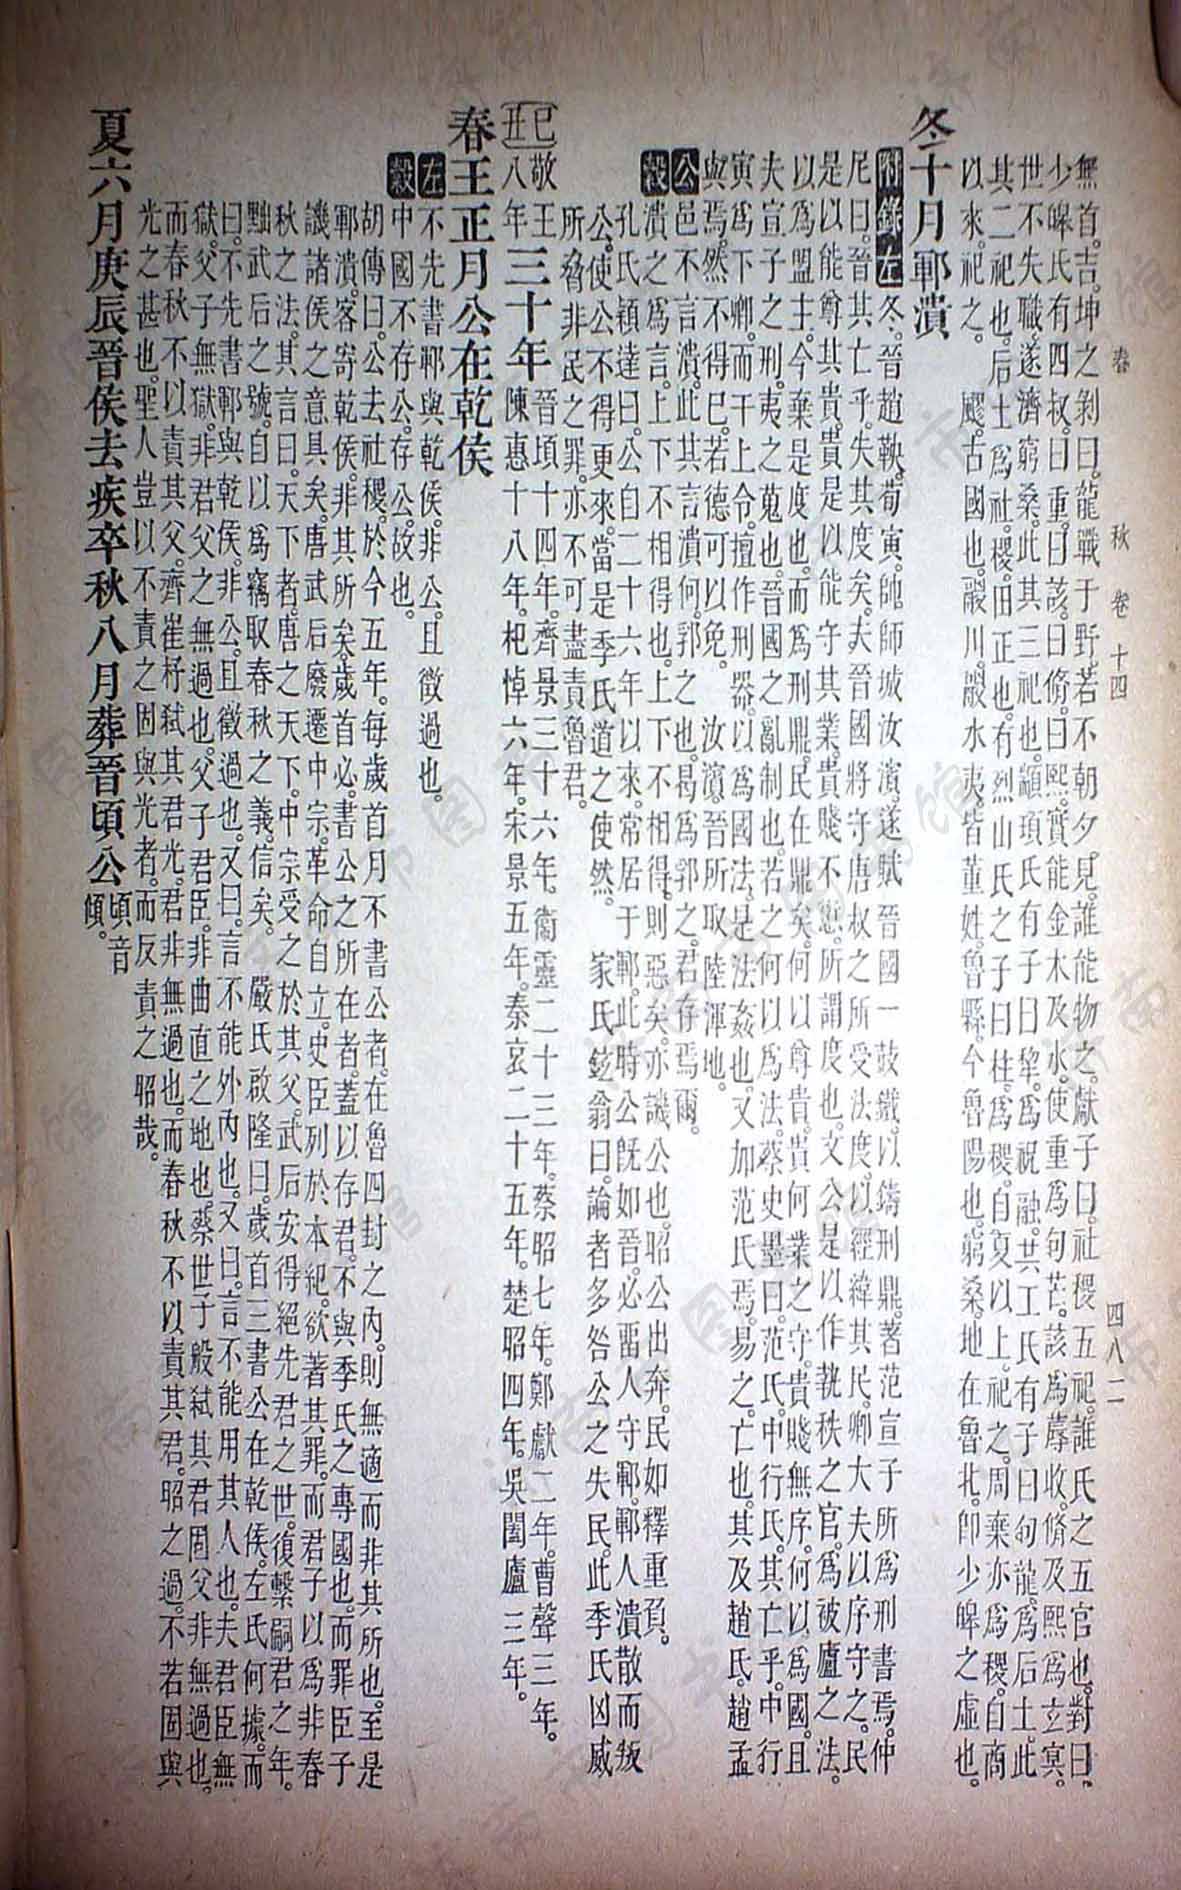 春　秋　卷十四　四八二
無首。吉。坤之剝曰。龍戰于野。若不朝夕見。誰能物之。獻子曰。社稷五祀。誰氏之五官也。對曰。
少皞氏有四叔。曰重。曰該。曰脩。曰熙。實能金木及水。使重為句芒。該為蓐收。脩及熙為玄冥。
世不失職。遂濟窮桑。此其三祀也。顓頊氏有子曰犂。為祝融。共工氏有子曰句龍。為后土。此
其二祀也。后土為社。稷。田正也。有烈山氏之子曰柱。為稷。自夏以上祀之。周棄亦為稷。自商
以來。祀之。　飂。古國也。鬷川。鬷水夷。皆董姓。魯縣。今魯陽也。窮桑。地在魯北。卽少皞之虛也。
冬十月鄆潰
附錄左冬。晉趙鞅。荀寅。帥師城汝濱。遂賦晉國一鼓鐵。以鑄刑鼎。著范宣子所為刑書焉。仲
尼曰。晉其亡乎。失其度矣。夫晉國將守唐叔之所受法度。以經緯其民。卿大夫以序守之。民
是以能尊其貴。貴是以能守其業。貴賤不愆。所謂度也。文公是以作執秩之官。為被廬之法。
以為盟主。今棄是度也。而為刑鼎。民在鼎矣。何以尊貴。貴何業之守。貴賤無序。何以為國。且
夫宣子之刑。夷之蒐也。晉國之亂制也。若之何以為法。蔡史墨曰。范氏。中行氏。其亡乎。中行
寅為下卿。而干上令。擅作刑器。以為國法。是法姦也。又加范氏焉。易之。亡也。其及趙氏。趙孟
與焉。然不得已。若德可以免。　汝濱。晉所取陸渾地。
公邑不言潰。此其言潰何。郛之也。曷為郛之。君存焉爾。
穀潰之為言。上下不相得也。上下不相得。則惡矣。亦譏公也。昭公出奔。民如釋重負。
孔氏穎達曰。公自二十六年以來。常居于鄆。此時公旣如晉。必畱人守鄆。鄆人潰散而叛
公。使公不得更來。當是季氏道之使然。　家氏鉉翁曰。論者多咎公之失民。此季氏凶威
所脅。非民之罪。亦不可盡責魯君。
己丑
敬王八年三十年晉頃十四年。齊景三十六年。衞靈二十三年。蔡昭七年。鄭獻二年。曹聲三年。
陳惠十八年。杞悼六年。宋景五年。秦哀二十五年。楚昭四年。吳闔廬三年。
春王正月公在乾侯
左不先書鄆與乾侯。非公。且徵過也。
穀中國不存公。存公故也。
胡傳曰。公去社稷。於今五年。每歲首月。不書公者。在魯四封之內。則無適而非其所也。至是
鄆潰。客寄乾侯。非其所矣。歲首必書公之所在者。蓋以存君。不與季氏之專國也。而罪臣子
譏諸侯之意具矣。唐武后廢遷中宗。革命自立。史臣列於本紀。欲著其罪。而君子以為非春
秋之法。其言曰。天下者。唐之天下。中宗受之於其父。武后安得絕先君之世。復繫嗣君之年。
黜武后之號。自以為竊取春秋之義。信矣。　嚴氏啟隆曰。歲首三書公在乾侯。左氏何據。而
曰。不先書鄆與乾侯。非公。且徵過也。又曰。言不能外內也。又曰。言不能用其人也。夫君臣無
獄。父子無獄。非君父之無過也。父子君臣。非曲直之地也。蔡世子般弒其君固。父非無過也。
而春秋不以責其父。齊崔杼弒其君光。君非無過也。而春秋不以責其君。昭之過。不若固與
光之甚也。聖人豈以不責之固與光者。而反責之昭哉。
夏六月庚辰晉侯去疾卒秋八月葬晉頃公頃音傾。